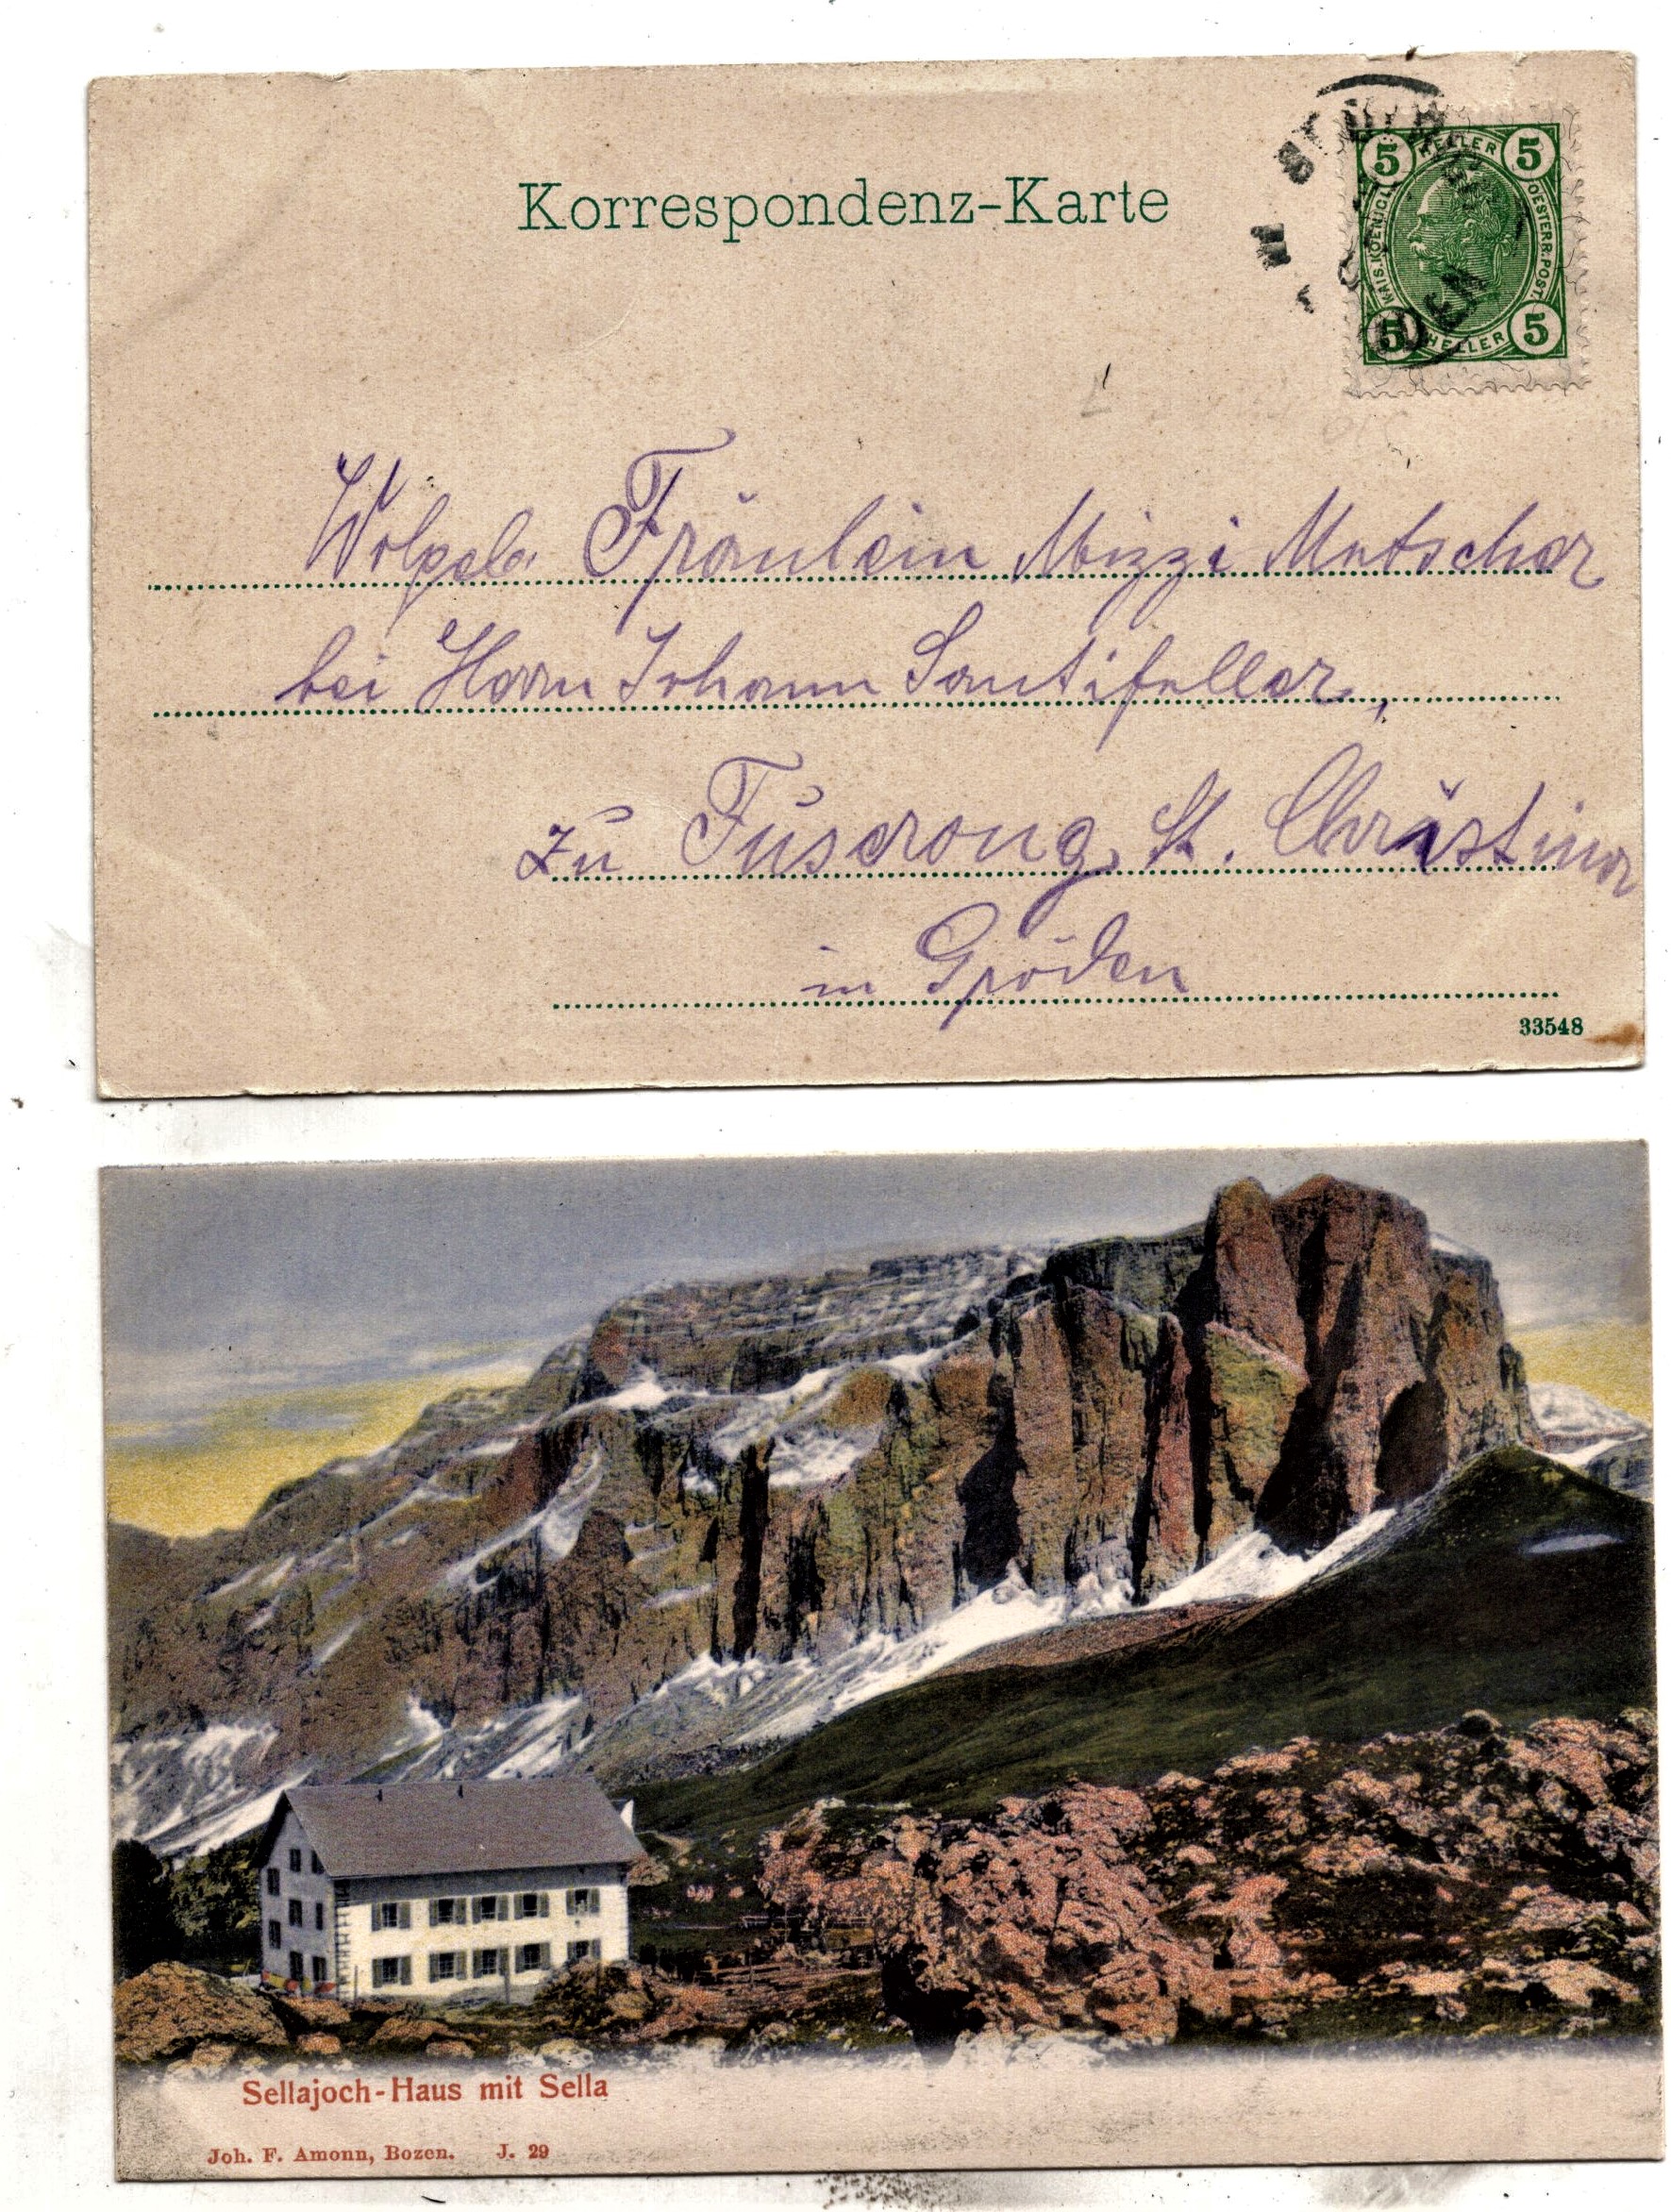 Korrespondenz-Karte
5 HELLER 5
KAIS. KOENIGL. OESTERR. POST.
5 HELLER 5
WIEN
Fräulein Mizzi Matscher
bei Herrn Johann Santifaller,
zu Fuscrong St. Christina
in Gröden
33548
Sellajoch-Haus mit Sella
Joh. F. Amonn, Bozen. J. 29